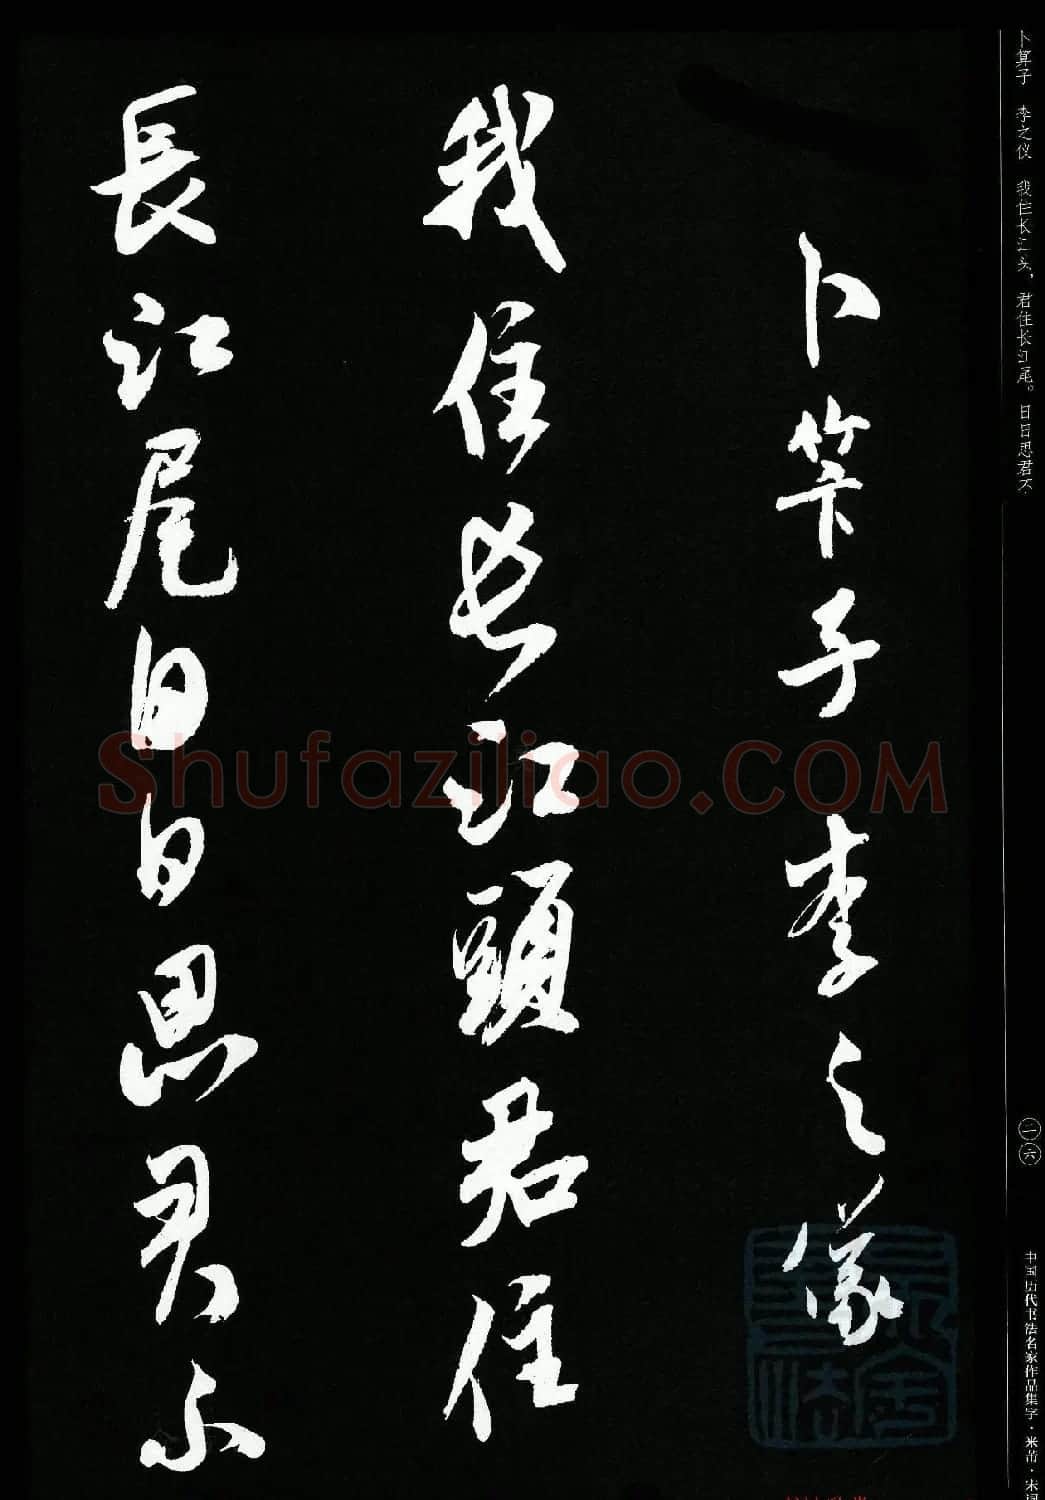 卜算子 李之仪 我住长江头，君住长江尾。日日思君不
二六
中国历代书法名家作品集字·米芾·宋词
卜筭子李之儀
我住長江頭君住
長江尾日日思君不
Shufaziliao.COM